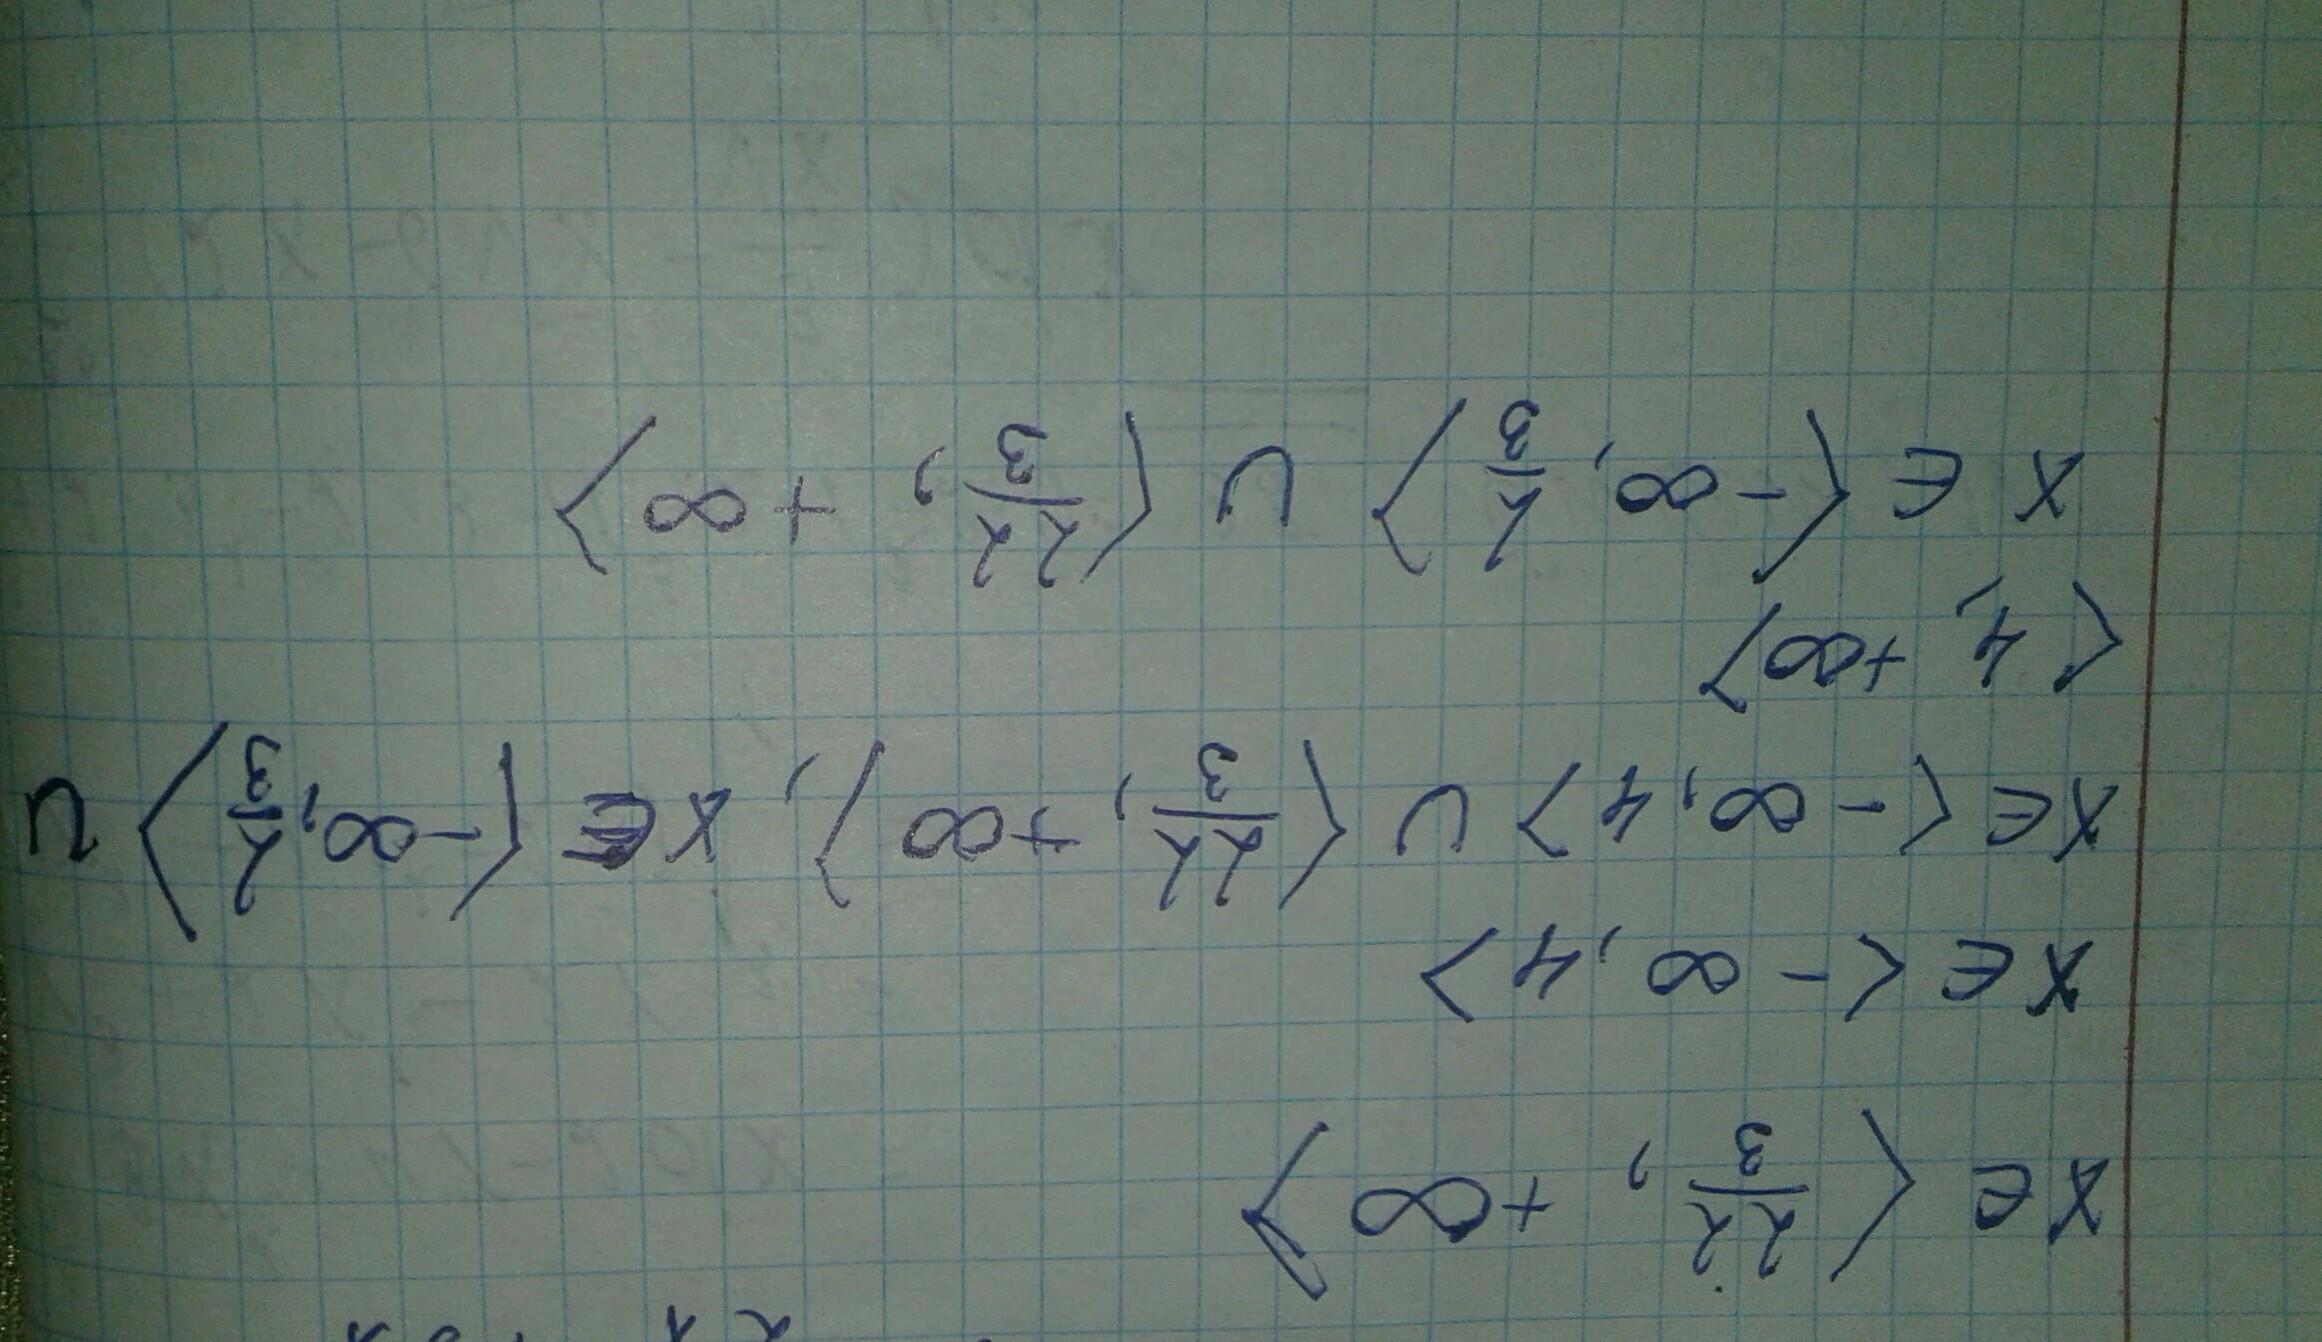 x ∈ ⟨22/3, +∞⟩
x ∈ ⟨-∞, 4⟩
x ∈ ⟨-∞, 4⟩ ∪ ⟨22/3, +∞⟩, x ∈ ⟨-∞, 2/3⟩ ∪
⟨4, +∞⟩
x ∈ ⟨-∞, 2/3⟩ ∪ ⟨22/3, +∞⟩